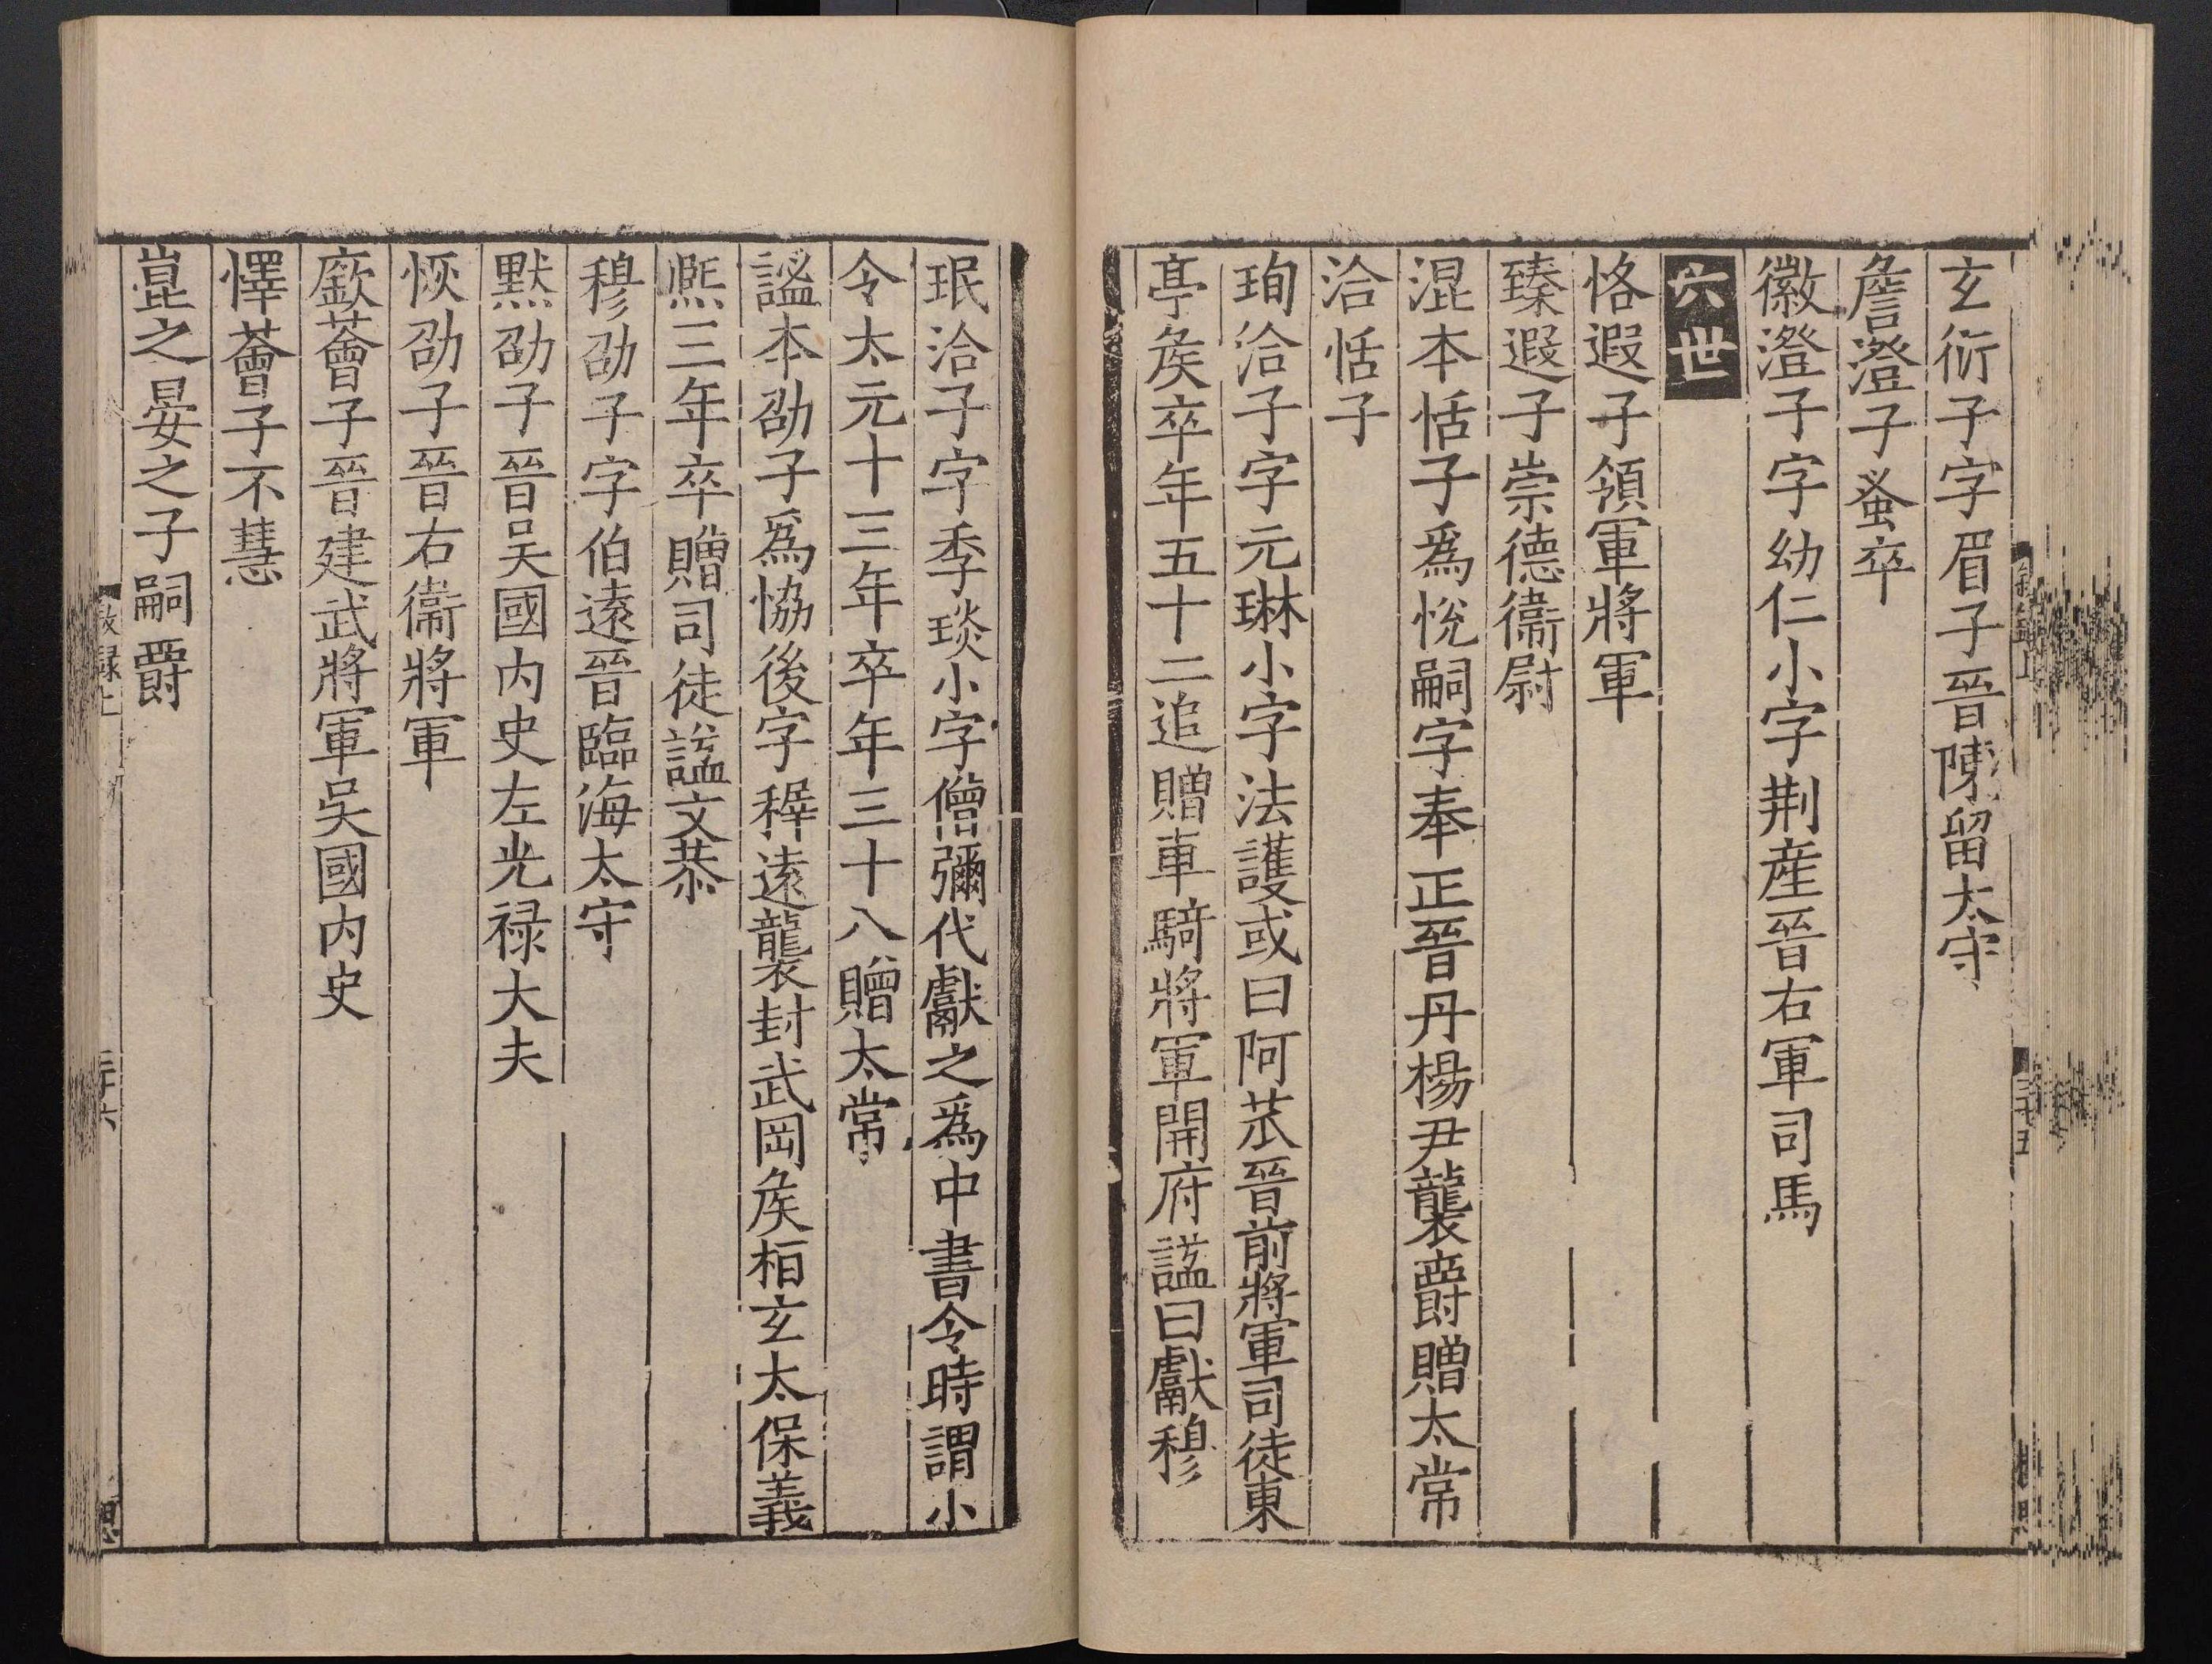 玄衍子字眉子晉陳留太守
詹澄子蚤卒
徽澄子字幼仁小字荆産晉右軍司馬
六世
恪遐子領軍將軍
臻遐子崇德衞尉
混本恬子爲悅嗣字奉正晉丹楊尹襲爵贈太常
洽恬子
珣洽子字元琳小字法護或曰阿苽晉前將軍司徒東
亭矦卒年五十二追贈車騎將軍開府諡曰獻穆
珉洽子字季琰小字僧彌代獻之爲中書令時謂小
令太元十三年卒年三十八贈太常
謐本劭子爲協後字稺遠襲封武岡矦桓玄太保義
熈三年卒贈司徒諡文恭
穆劭子字伯遠晉臨海太守
默劭子晉吴國内史左光禄大夫
恢劭子晉右衞將軍
廞薈子晉建武將軍吴國内史
懌薈子不慧
崑之晏之子嗣爵
叙録上
三十五
叙録上
三十六